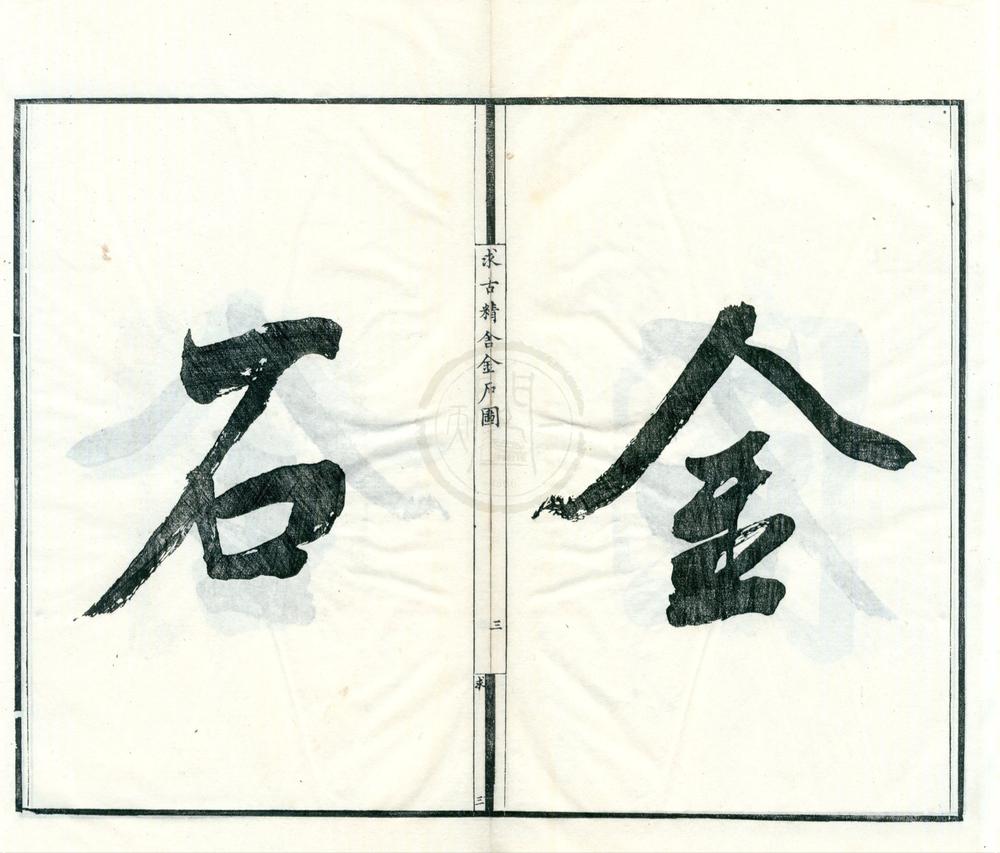 金
石
求古精舍金石圖
三
求
三